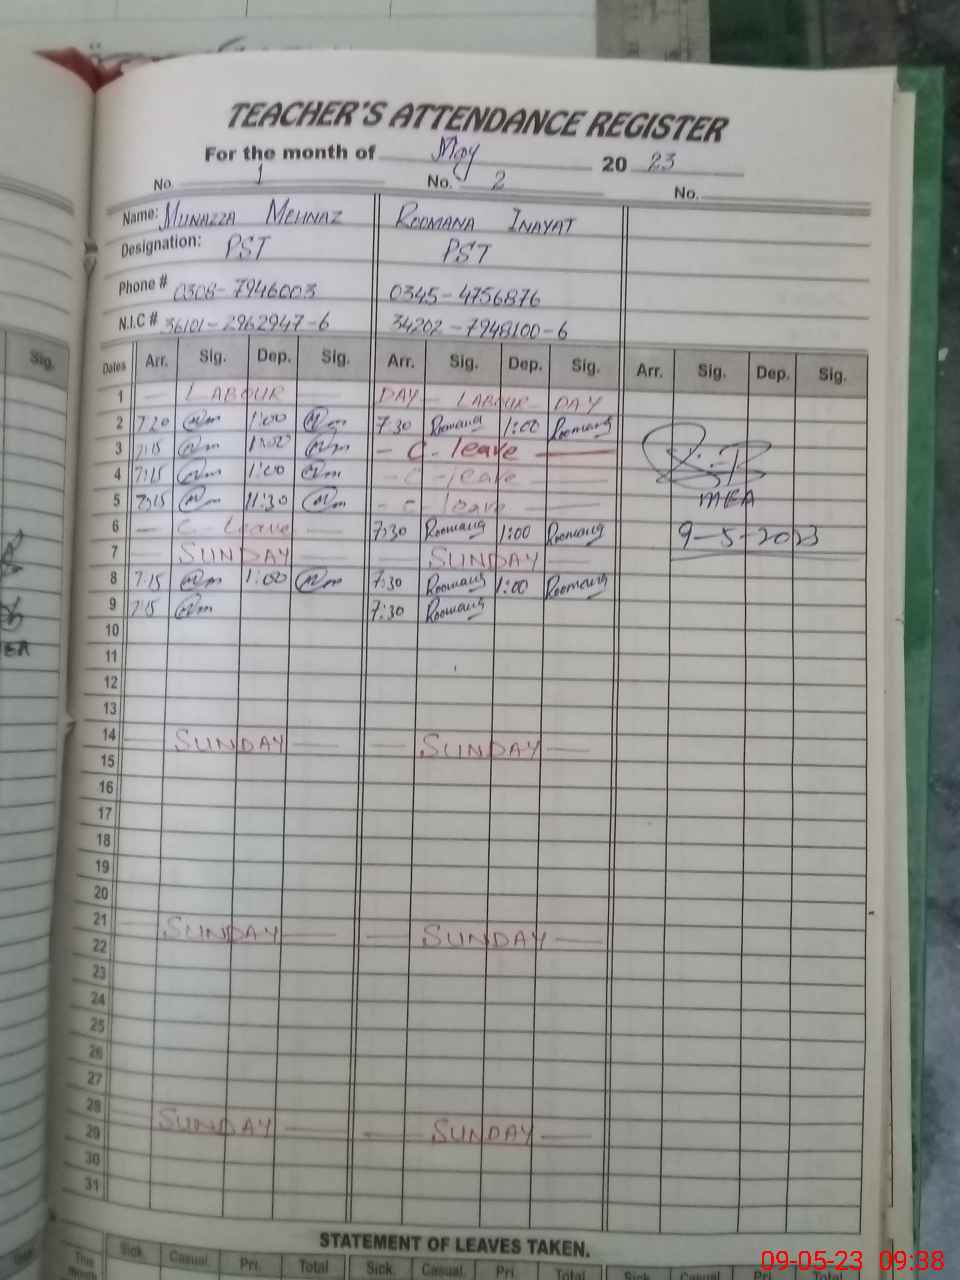 TEACHER'S ATTENDANCE REGISTER
For the month of May 20 23
No. 1 No. 2 No.
Name: MUNAZZA MEHNAZ ROOMANA INAYAT
Designation: PST PST
Phone # 0308-7946003 0345-4756876
N.I.C # 36101-2962947-6 34202-7948100-6
Dates Arr. Sig. Dep. Sig. Arr. Sig. Dep. Sig. Arr. Sig. Dep. Sig.
1 — LABOUR — DAY — LABOUR — DAY
2 7:20 1:00 7 30 Roomana 1:00 Roomana
3 7:15 1:00 - C - leave —
4 7:15 1:00 - C - leave —
5 7:15 11:30 - C - leave —
MEA
6 — C - Leave — 7:30 Roomana 1:00 Roomana
9-5-2023
7 — SUNDAY — SUNDAY —
8 7:15 1:00 7:30 Roomana 1:00 Roomana
9 7:15 7:30 Roomana
10
11
12
13
14 — SUNDAY — — SUNDAY —
15
16
17
18
19
20
21 — SUNDAY — — SUNDAY —
22
23
24
25
26
27
28 — SUNDAY — — SUNDAY —
29
30
31
STATEMENT OF LEAVES TAKEN.
This Sick. Casual. Pri. Total Sick. Casual. Pri. Total Sick. Casual Pri. Total
Sig.
09-05-23 09:38